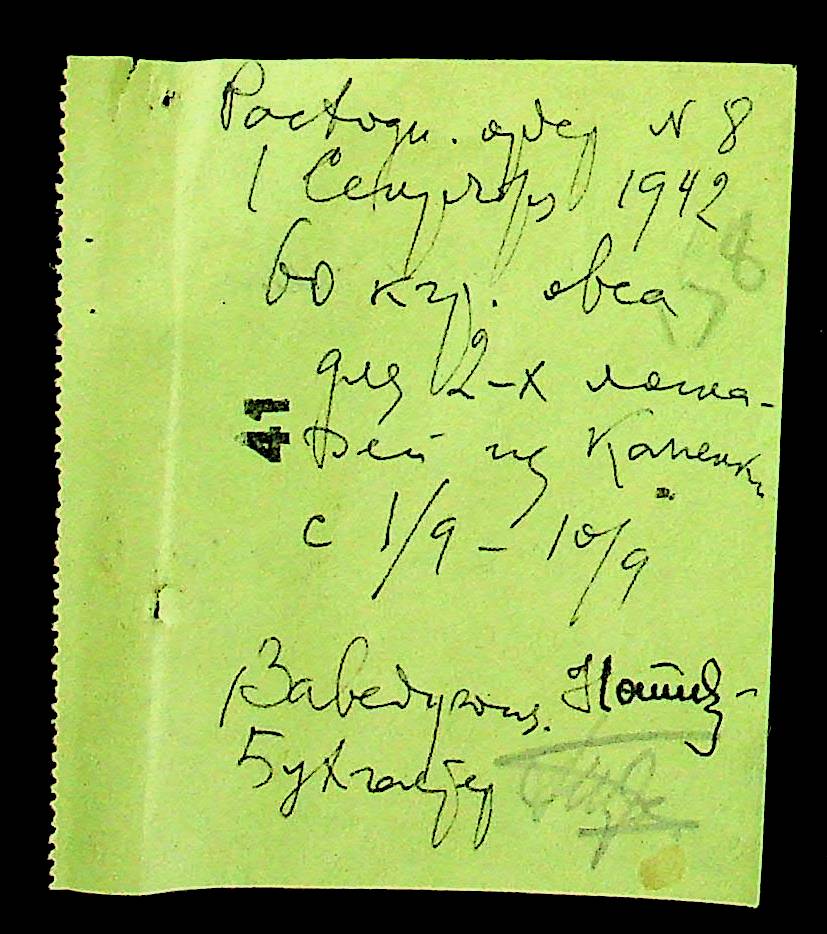 Расходн. ордер N 8
1 Сентября 1942
60 кгр. овса
для 2-х лоша-
41
дей из Каменки
с 1/9 - 10/9
Заведующ.
Бухгалтер